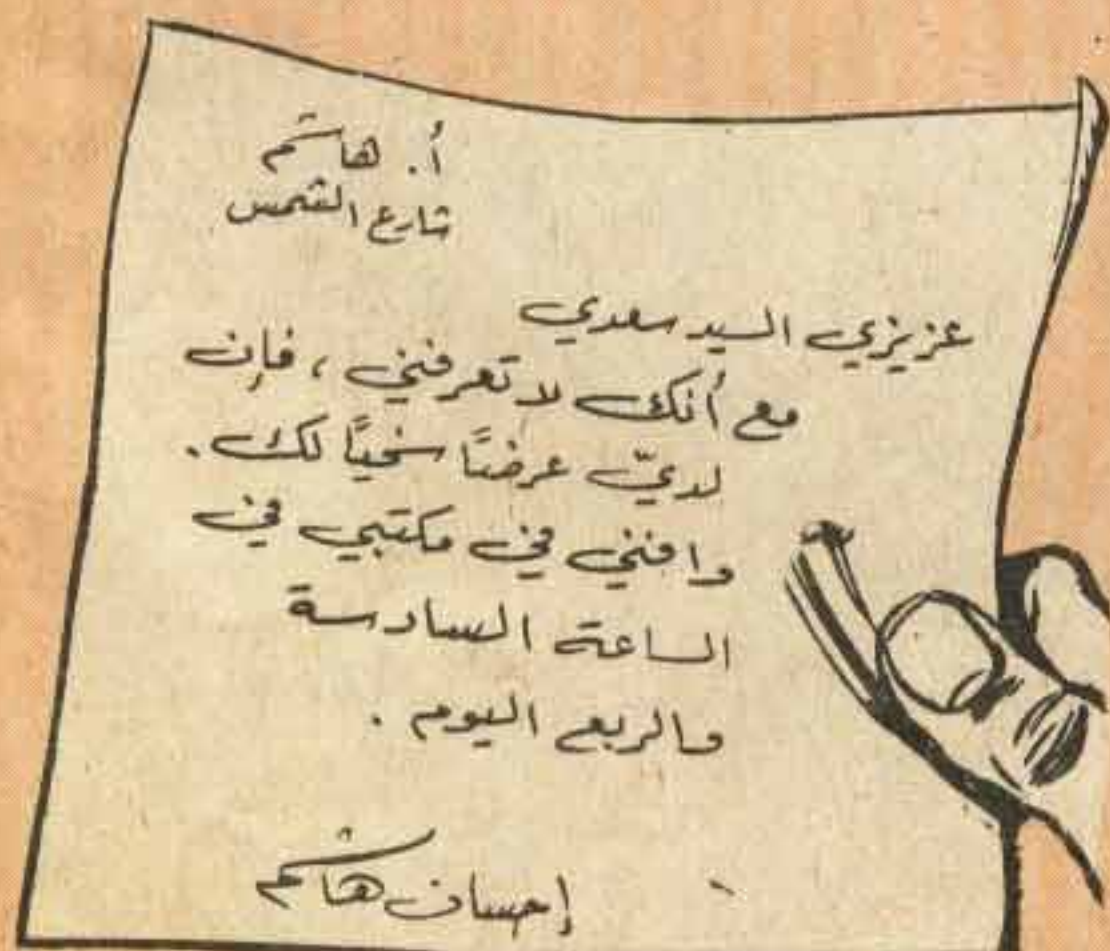 أ. هاشم
شارع الشمس
عزيزي السيد سعدي
مع أنك لا تعرفني ، فإن
لديّ عرضًا سخيًا لك .
وافني في مكتبي في
الساعة السادسة
والربع اليوم .
إحسان هاشم